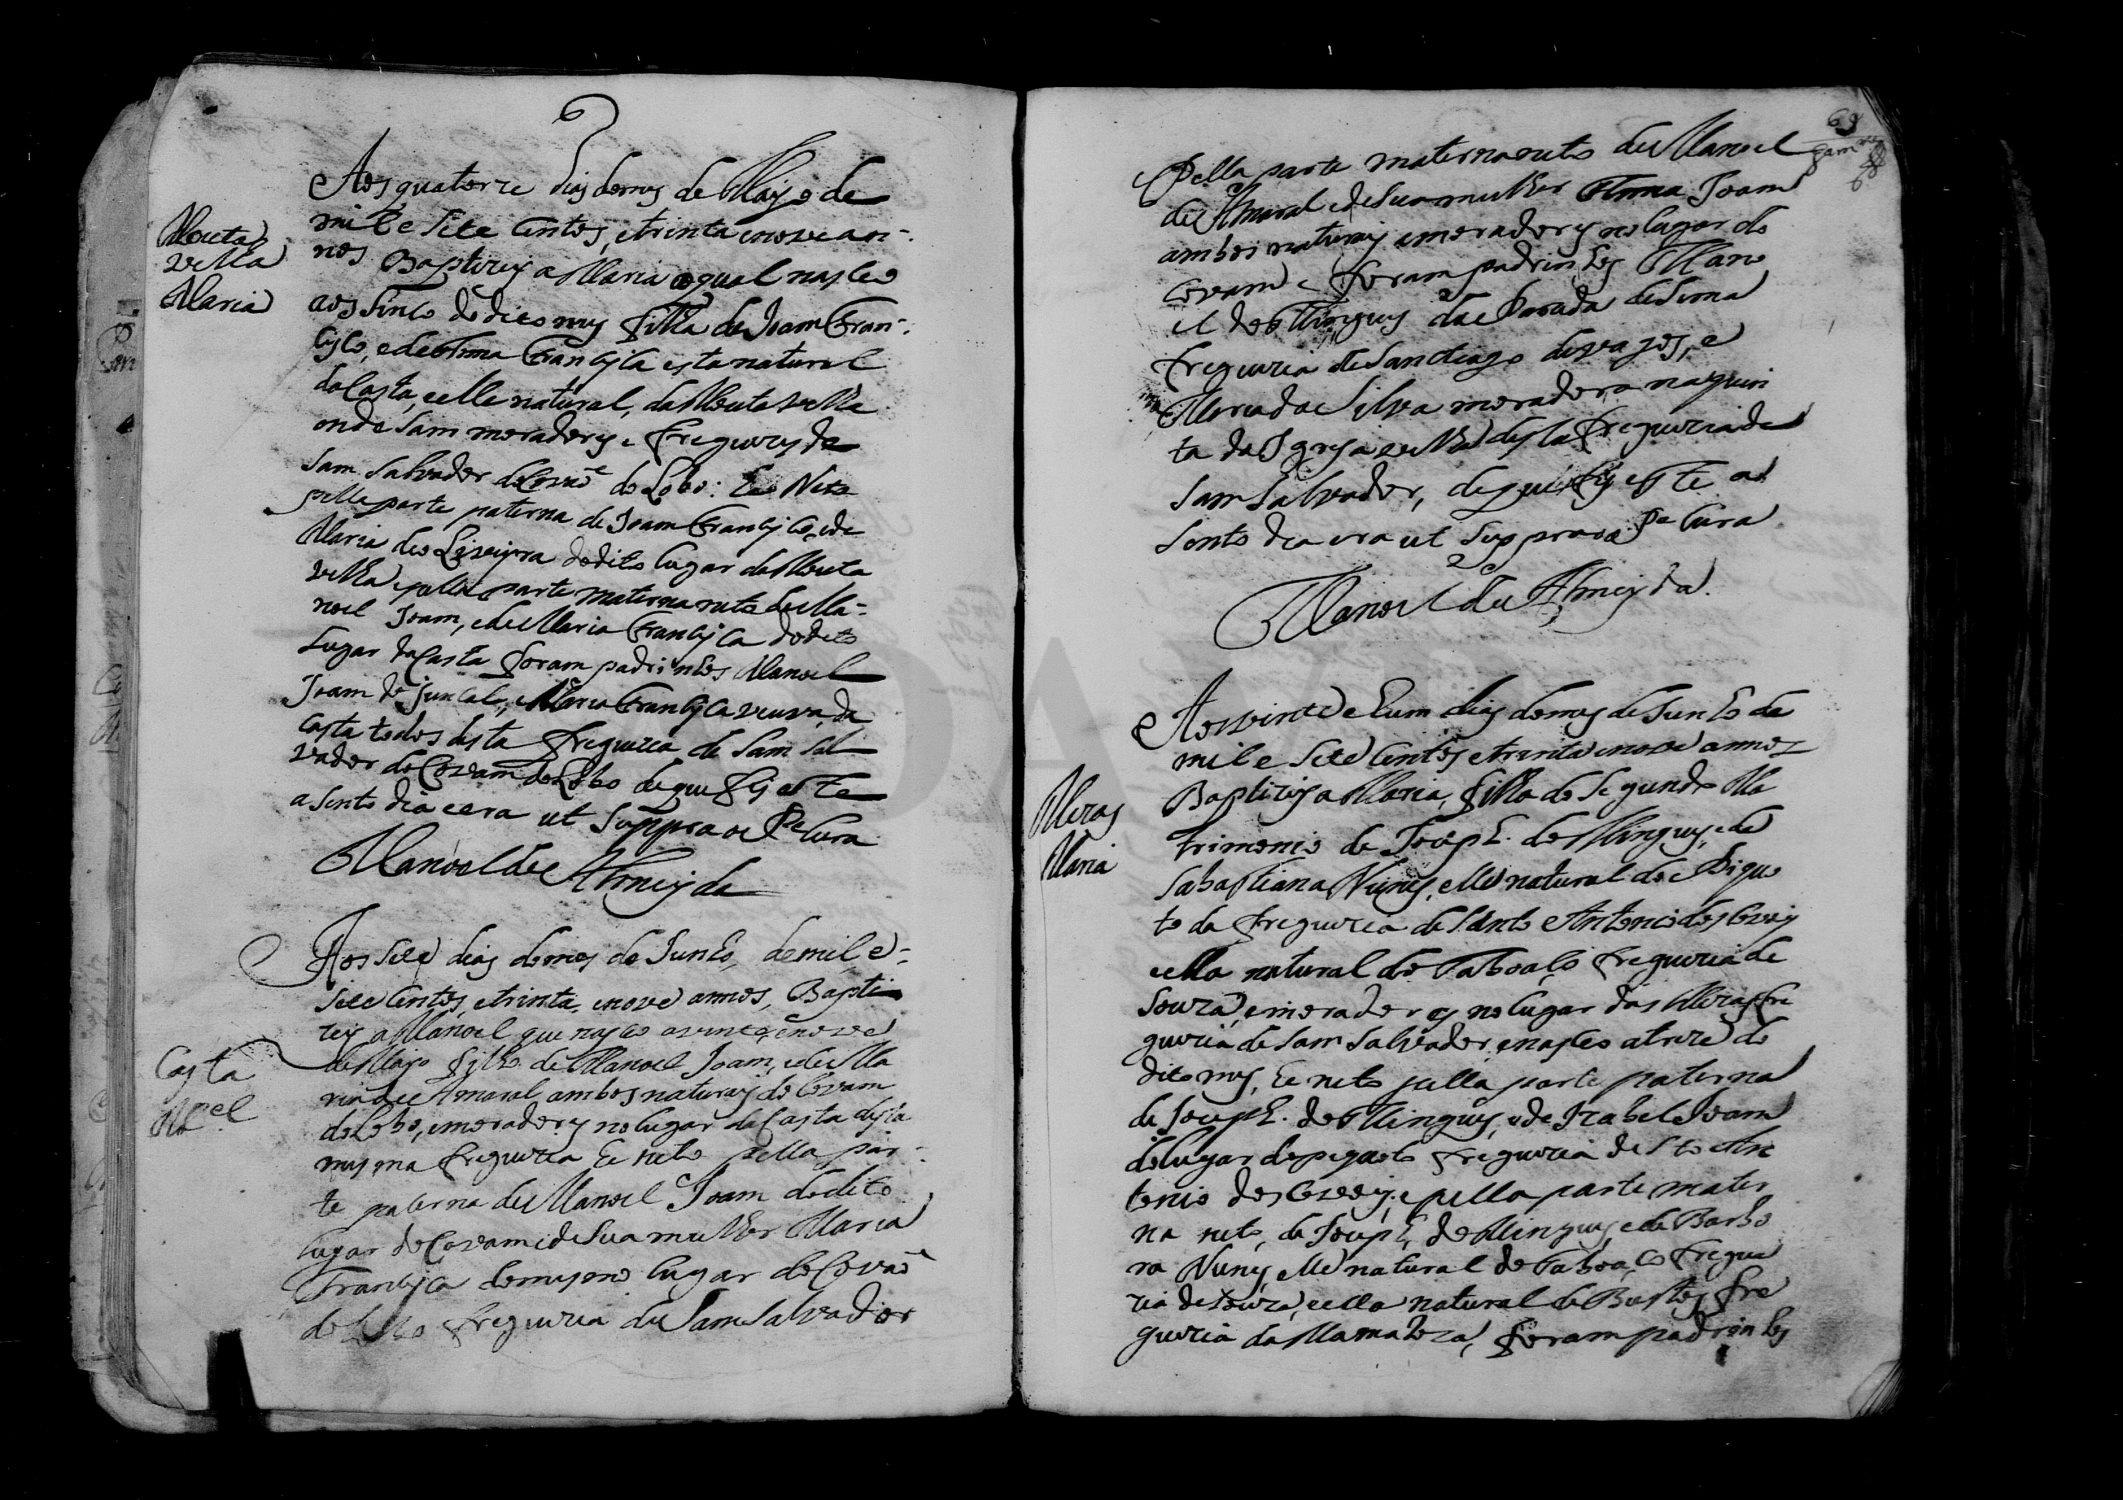 Aos quatorze dias do mes de Mayo de
mil e sete centos, e trinta e nove an-
nos Baptizey a Maria a qual nasceo
aos sinco do dito mes filha de Joam Fran-
cisco, e de Anna Francisca esta natural
da Costa, e elle natural, da Mouta velha
onde sam moradores e freguezes de
Sam Salvador do Covaõ do Lobo: he Neta
pella parte paterna de Joam Francisco, e de
Maria de Oliveyra do dito lugar da Mouta
velha, e pella parte materna neta de Ma-
noel Joam, e de Maria Francisca do dito
lugar da Costa foram padrinhos Manoel
Joam do juncal, e Maria Francisca veuva, da
Costa todos desta freguezia de Sam Sal
vador do Covam do Lobo de que fis este
asento dia e era ut supra o Pe Cura
Manoel de Almeyda
Mouta
velha
Maria
Aos sete dias do mes de Junho, de mil e-
sete centos, e trinta, e nove annos, Bapti
zey a Manoel que nasceo a vinte e nove
de Mayo filho de Manoel Joam, e de Ma
ria de Amaral ambos naturais do Covam
do Lobo, e moradores no lugar da Costa desta
mesma freguezia he neto pella par-
te paterna de Manoel Joam do dito
lugar do Covam e de sua mulher Maria
Francisca do mesmo lugar do Covaõ
do Lobo freguezia de Sam Salvador
Costa
Mel
69
Pella parte materna neto de Manoel
de Amaral e de sua mulher Anna Joam
ambos naturais e moradores no lugar do
Covam e foram padrinhos Mano
el Domingues da Parada de Sima
freguezia de Sanctiago de vagos, e
Maria da Silva moradora na quin
ta da Igreja velha desta freguezia de
Sam Salvador, de que fis este a
sento dia era ut supra o Pe Cura
Manoel de Almeyda.
Aos vinte e hum dias do mes de Junho de
mil e sete centos e trinta e nove annos
Baptizey a Maria, filha do segundo Ma
trimonio de Joseph. Domingues, e de
Sabastiana Nunes, elle natural do Pigue
to da freguezia de Santo Antonio dos Covois
e ella natural do Taboaço freguezia de
Souza, e moradores no lugar das Meras fre
guezia de Sam Salvador, e nasceo a treze do
dito mes, he neto pella parte paterna
de Joseph. Domingues, e de Izabel Joam
do lugar do pegueto freguezia de Sto An
tonio dos Covois; e pella parte mater
na neto, de Joseph, Domingues e de Barbo
ra Nunes, elle natural do Taboaço fregue
zia de Souza, e ella natural de Bustos fre
guezia da Mamaroza, foram padrinhos
Meras
Maria